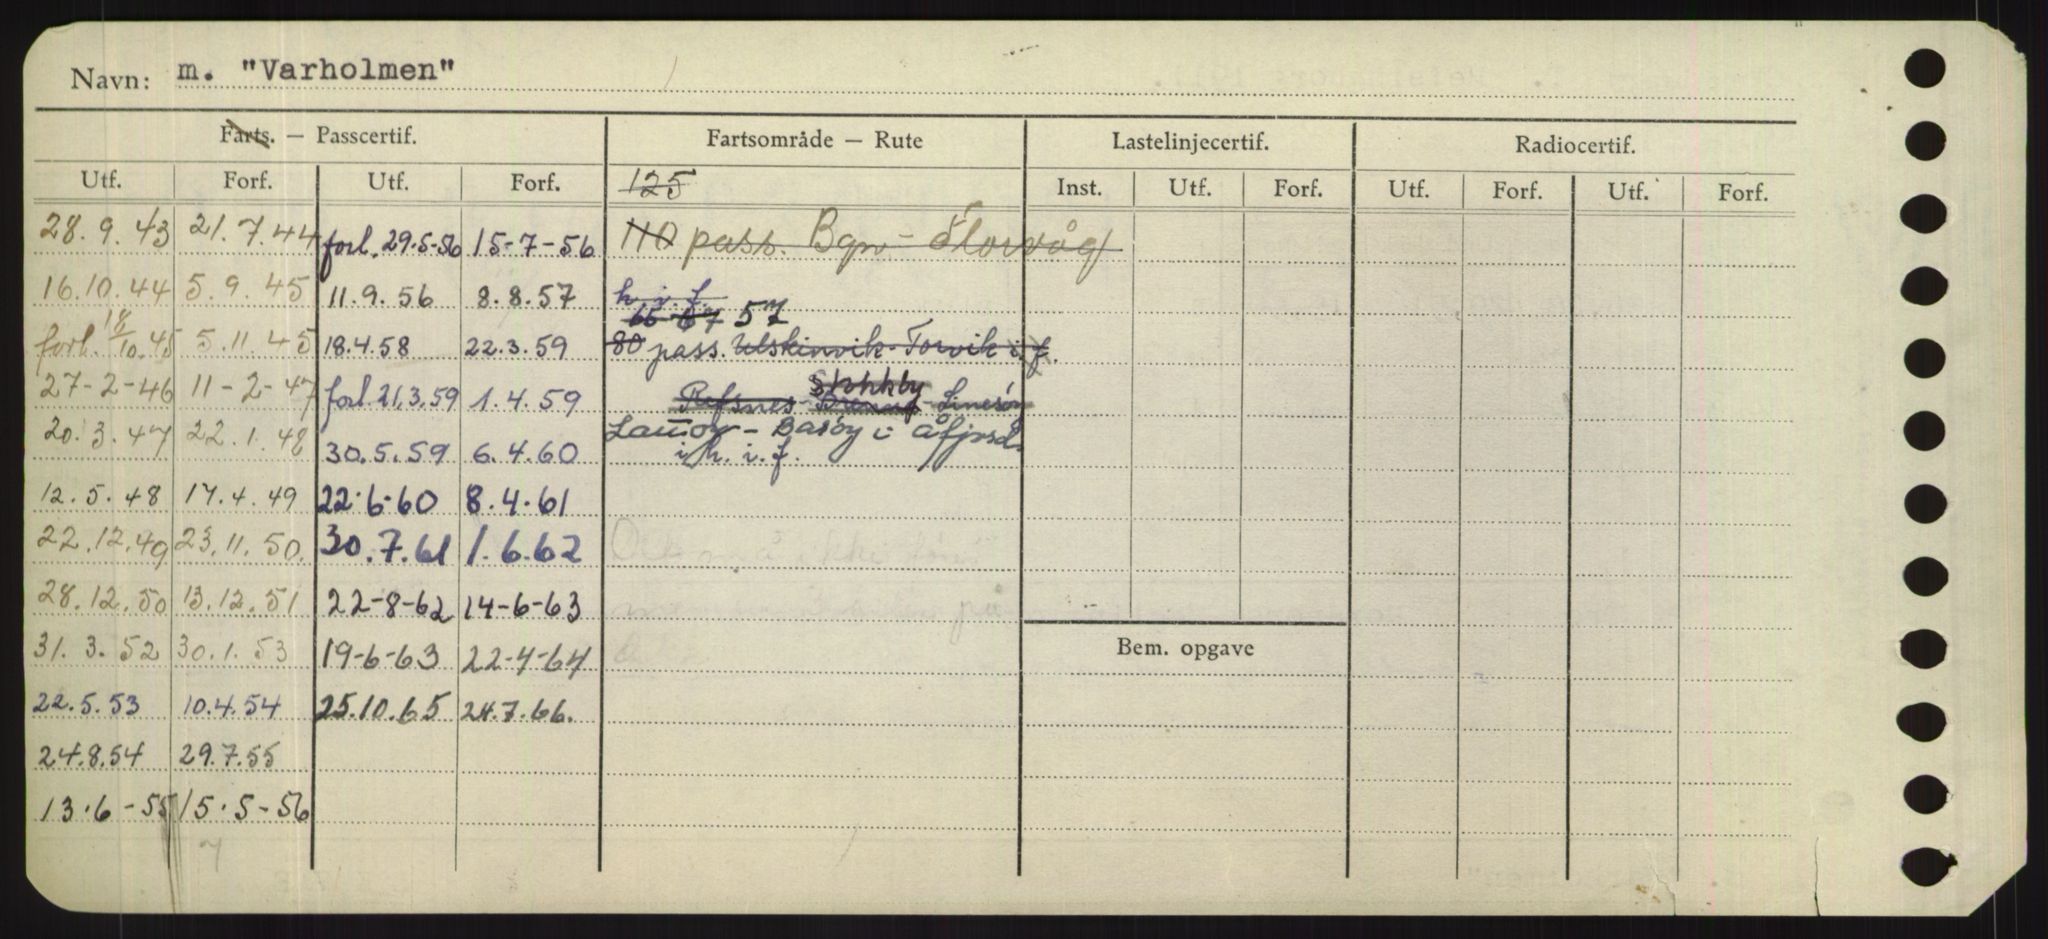 Navn: m. "Varholmen"
Farts. — Passcertif. Fartsområde — Rute Lastelinjecertif. Radiocertif.
Utf. Forf. Utf. Forf. 125 Inst. Utf. Forf. Utf. Forf. Utf. Forf.
28.9.43 21.7.44 forl. 29.5-56 15-7-56 110 pass. Bgn - Florvåg
16.10.44 5.9.45 11.9.56 8.8.57 h.i.f.
65 67 57
forl. 18/10.45 5.11.45 18.4.58 22.3.59 80 pass. Ulskinvik-Torvik i. f.
27-2-46 11-2-47 forl. 21.3.59 1.4.59 Refsnes - - Linesöy
20.3.47 22.1.48 30.5.59 6.4.60 - Basöy i Åfjord
i h.i.f.
12.5.48 17.4.49 22.6.60 8.4.61
22.12.49 23.11.50. 30.7.61 1.6.62
28.12.50 13.12.51 22-8-62 14-6-63
31.3.52 30.1.53 19-6-63 22-4-64 Bem. opgave
22.5.53 10.4.54 25.10.65 24.7.66.
24.8.54 29.7.55
13.6-55 15.5-56
7